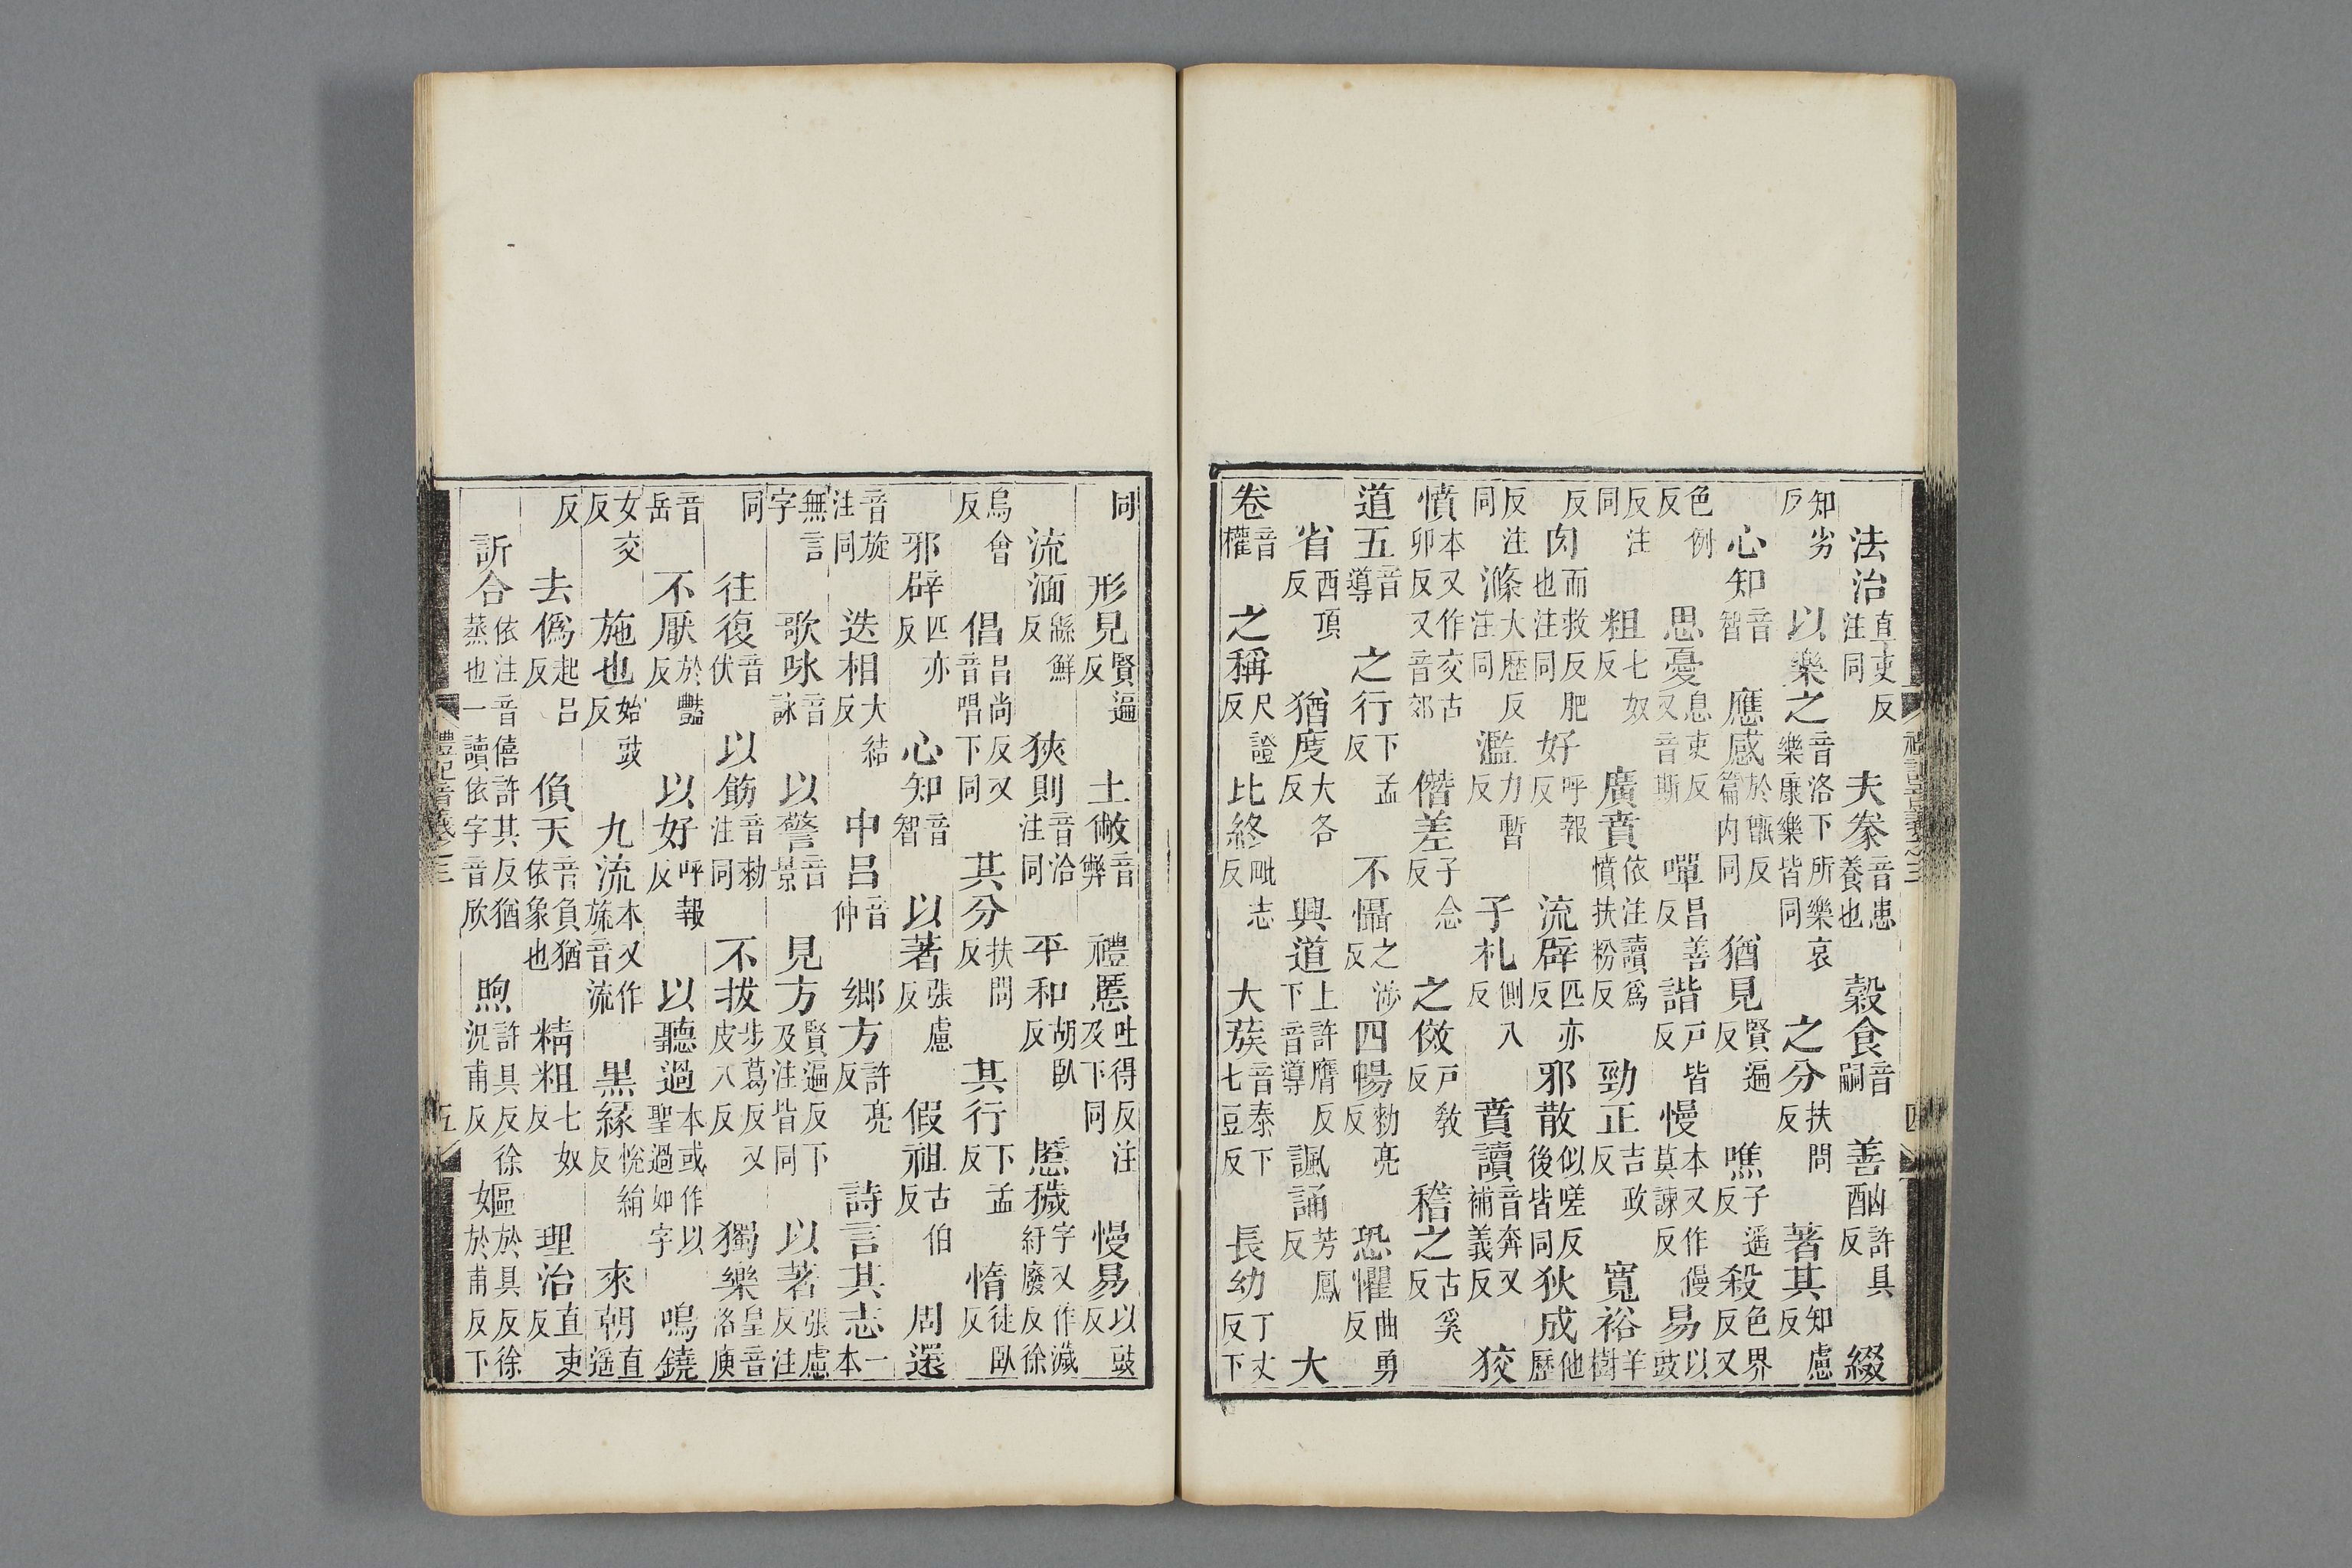 法治直吏反注同 夫豢音患養也 穀食音嗣 善酗許具反 綴
知劣反 以樂之音洛下所樂哀樂康樂皆同 之分扶問反 著其知慮反
心知音智 應感於甑反篇内同 猶見賢遍反 噍子遥反 殺色界反又
色例反 思憂息吏反又音斯 嘽昌善反 諧戶皆反 慢本又作僈莫諫反 易以豉
反注同 粗七奴反 廣賁依注讀爲憤扶粉反 勁正吉政反 寬裕羊樹
反 肉而救反肥也注同 好呼報反 流辟匹亦反 邪散似嗟反後皆同 狄成他歷
反注同 滌大歷反注同 濫力暫反 子札側八反 賁讀音奔又補義反 狡
憤本又作交古卯反又音郊 僭差子念反 之傚戶敎反 稽之古奚反
道五音導 之行下孟反 不懾之涉反 四暢勑亮反 恐懼曲勇反
省西頂反 猶度大各反 興道上許膺反下音導 諷誦芳鳳反 大
卷音權 之稱尺證反 比終毗志反 大蔟音泰下七豆反 長幼丁丈反下
同 形見賢遍反 土敝音弊 禮慝吐得反注及下同 慢易以豉反
流湎緜鮮反 狹則音洽注同 平和胡臥反 慝穢字又作濊紆廢反徐
烏會反 倡昌尚反又音唱下同 其分扶問反 其行下孟反 惰徒臥反
邪辟匹亦反 心知音智 以著張慮反 假祖古伯反 周還
音旋注同 迭相大結反 中呂音仲 鄉方許亮反 詩言其志一本
無言字 歌咏音詠 以警音景 見方賢遍反下及注皆同 以著張慮反注
同 往復音伏 以飭音勑注同 不拔步葛反又皮八反 獨樂皇音洛庾
音岳 不厭於豔反 以好呼報反 以聽過本或作以聖過如字 鳴鐃
女交反 施也始豉反 九流本又作旒音流 黑緣悅絹反 來朝直遥
反 去僞起呂反 偩天音負猶依象也 精粗七奴反 理治直吏反
訢合依注音僖許其反猶蒸也一讀依字音欣 煦許具反徐況甫反 嫗於具反徐於甫反下
禮記音義之三 五